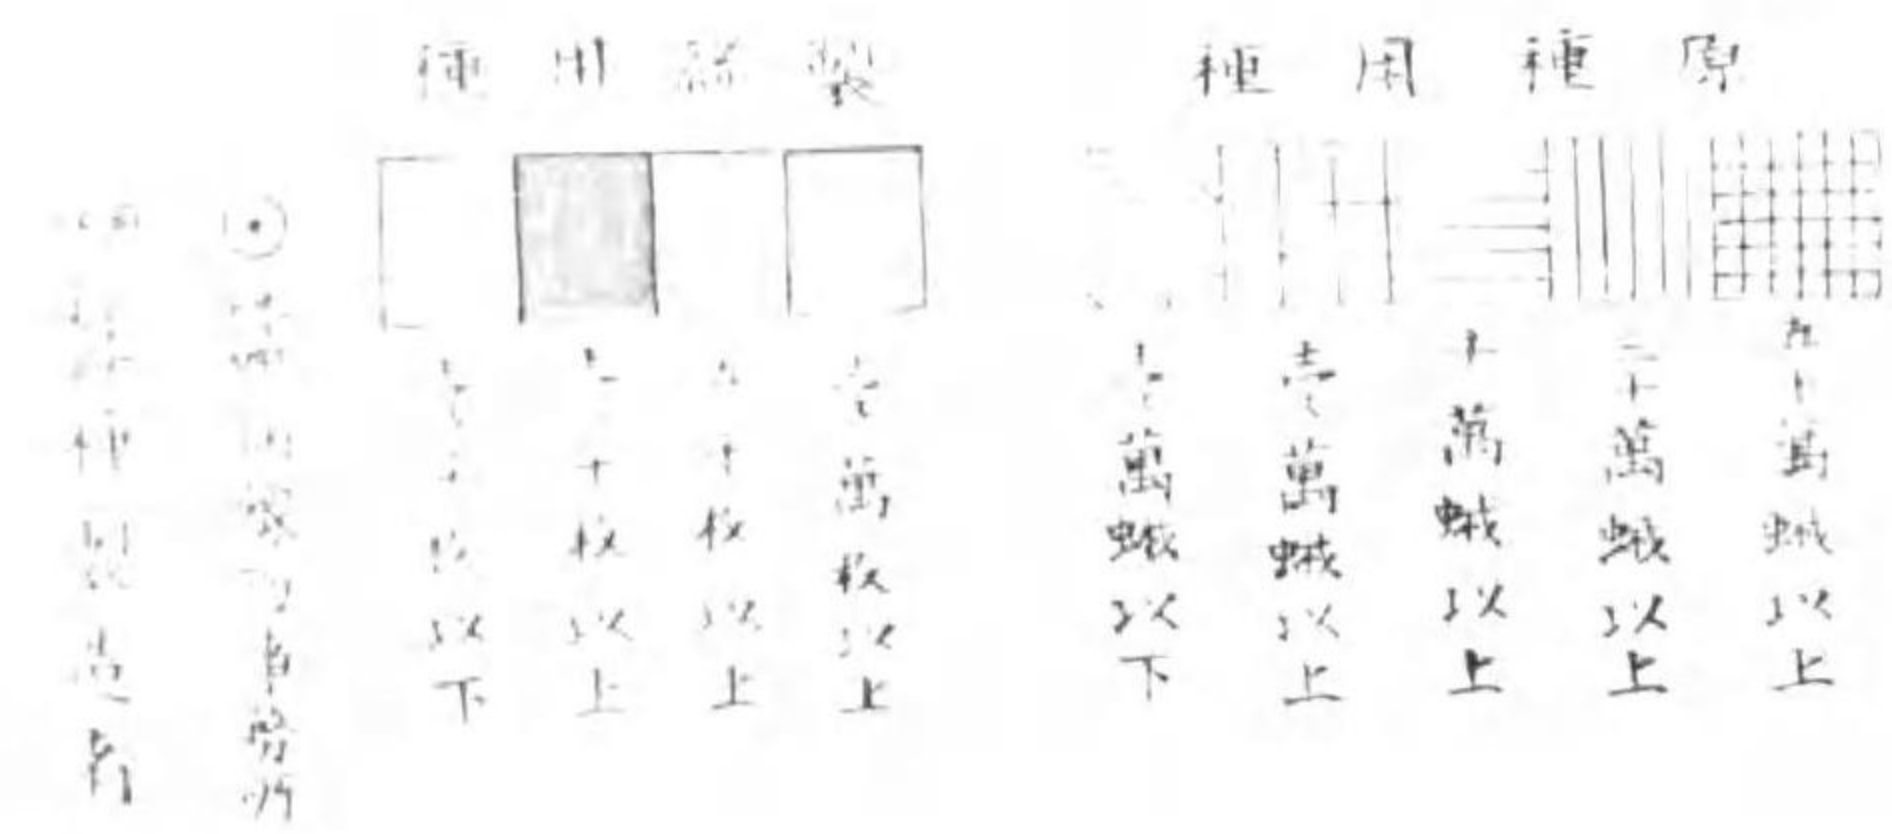 原種用種
五十萬蛾以上
二十萬蛾以上
十萬蛾以上
壱萬蛾以上
壱萬蛾以下
製絲用種
壱萬枚以上
五千枚以上
壱千枚以上
壱千枚以下
事務所
種製造者